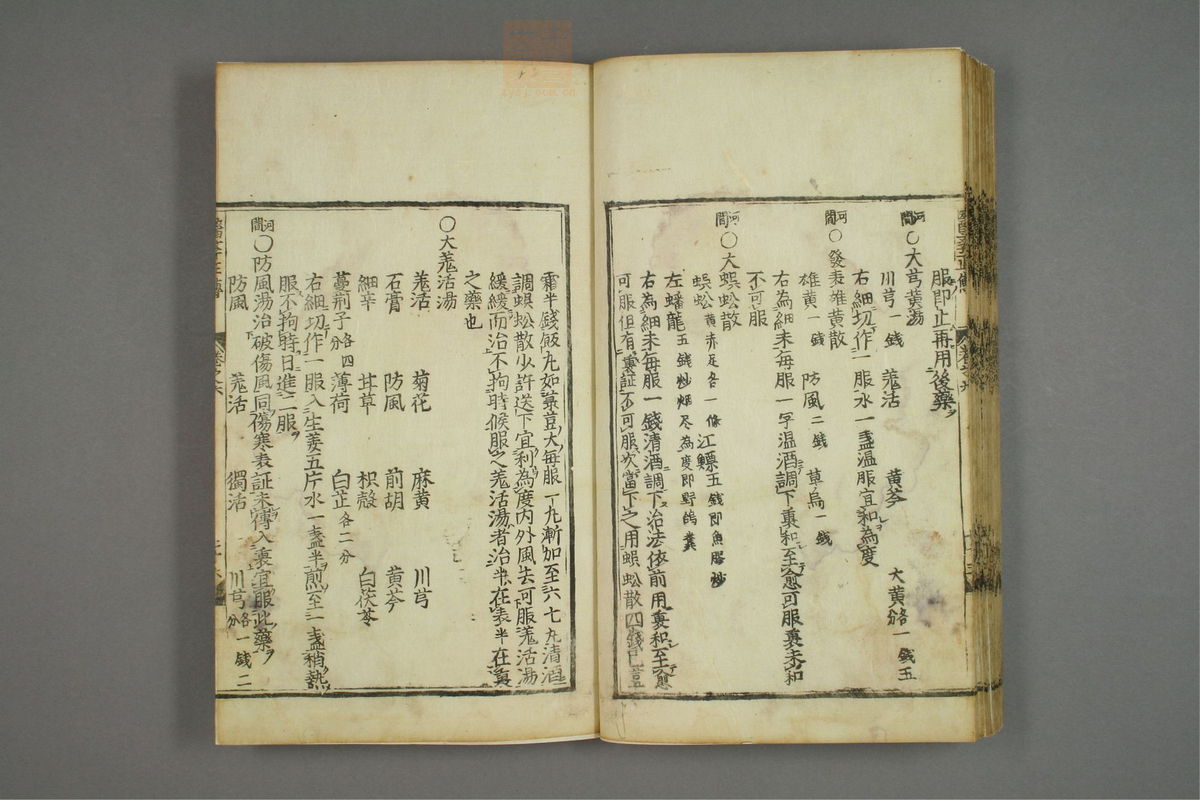 服即止再用後藥
河間○大芎黃湯
川芎一錢 羌活 黃芩 大黃各一錢五分
右細切作一服水一盞温服宜和為度
河間○發表雄黃散
雄黃一錢 防風二錢 草烏一錢
右為細末每服一字温酒調下裏和至愈可服裏未和
不可服
河間○大蜈蚣散
蜈蚣黃赤足各一條 江鰾五錢即魚膠炒
左蟠龍五錢炒烟尽為度即野鴿糞
右為細末每服一錢清酒調下治法依前用裏和至愈
可服但有裏証不可服次當下之用蜈蚣散四錢巴豆
霜半錢飯丸如菉豆大每服一丸漸加至六七丸清酒
調蜈蚣散少許送下宜利為度内外風去可服羌活湯
緩緩而治不拘時候服之羌活湯者治半在表半在裏
之藥也
○大羌活湯
羌活 菊花 麻黃 川芎
石膏 防風 前胡 黃芩
細辛 甘草 枳殼 白茯苓
蔓荆子各四分 薄荷 白芷各二分
右細切作一服入生姜五片水一盞半煎至一盞稍熱
服不拘時日進二服
河間○防風湯治破傷風同傷寒表証未傳入裏宜服此藥
防風 羌活 獨活 川芎各一錢二分